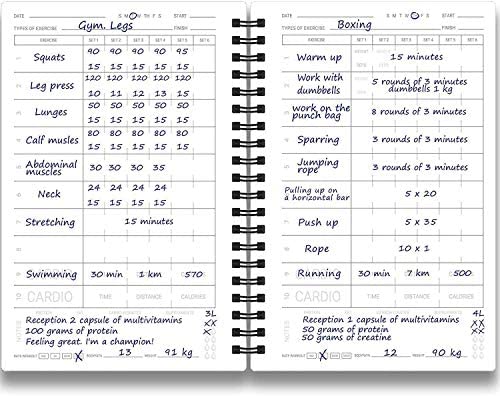 DATE S M T W T H F S START
TYPES OF EXERCISE Gym. Legs FINISH
EXERCISE SET 1 SET 2 SET 3 SET 4 SET 5 SET 6
1 Squats 90 90 90 90 95
15 15 15 15 15
2 Leg press 120 120 120 120 120
10 11 12 13 15
3 Lunges 50 50 50 50 50
15 15 15 15 15
4 Calf musles 80 80 80 80 80
15 15 15 15 15
5 Abdominal muscles 30 30 30 35
6 Neck 24 24 24
15 15 15
7 Stretching 15 minutes
8
9 Swimming 30 min 1 km 570
10 CARDIO TIME DISTANCE CALORIES
NOTES
3L
Reception 2 capsule of multivitamins
100 grams of protein
Feeling great. I'm a champion!
13 WEIGHT 91 kg
DATE S M T W T F S START
TYPES OF EXERCISE Boxing FINISH
EXERCISE SET 1 SET 2 SET 3 SET 4 SET 5 SET 6
1 Warm up 15 minutes
2 Work with dumbbells 5 rounds of 3 minutes
dumbbells 1 kg
3 work on the punch bag 8 rounds of 3 minutes
4 Sparring 3 rounds of 3 minutes
5 Jumping rope 3 rounds of 3 minutes
Pulling up on a horizontal bar 5 x 20
7 Push up 5 x 35
8 Rope 10 x 1
9 Running 30 min 7 km 500
10 CARDIO TIME DISTANCE CALORIES
NOTES
4L
Reception 1 capsule of multivitamins
50 grams of protein
50 grams of creatine
12 WEIGHT 90 kg